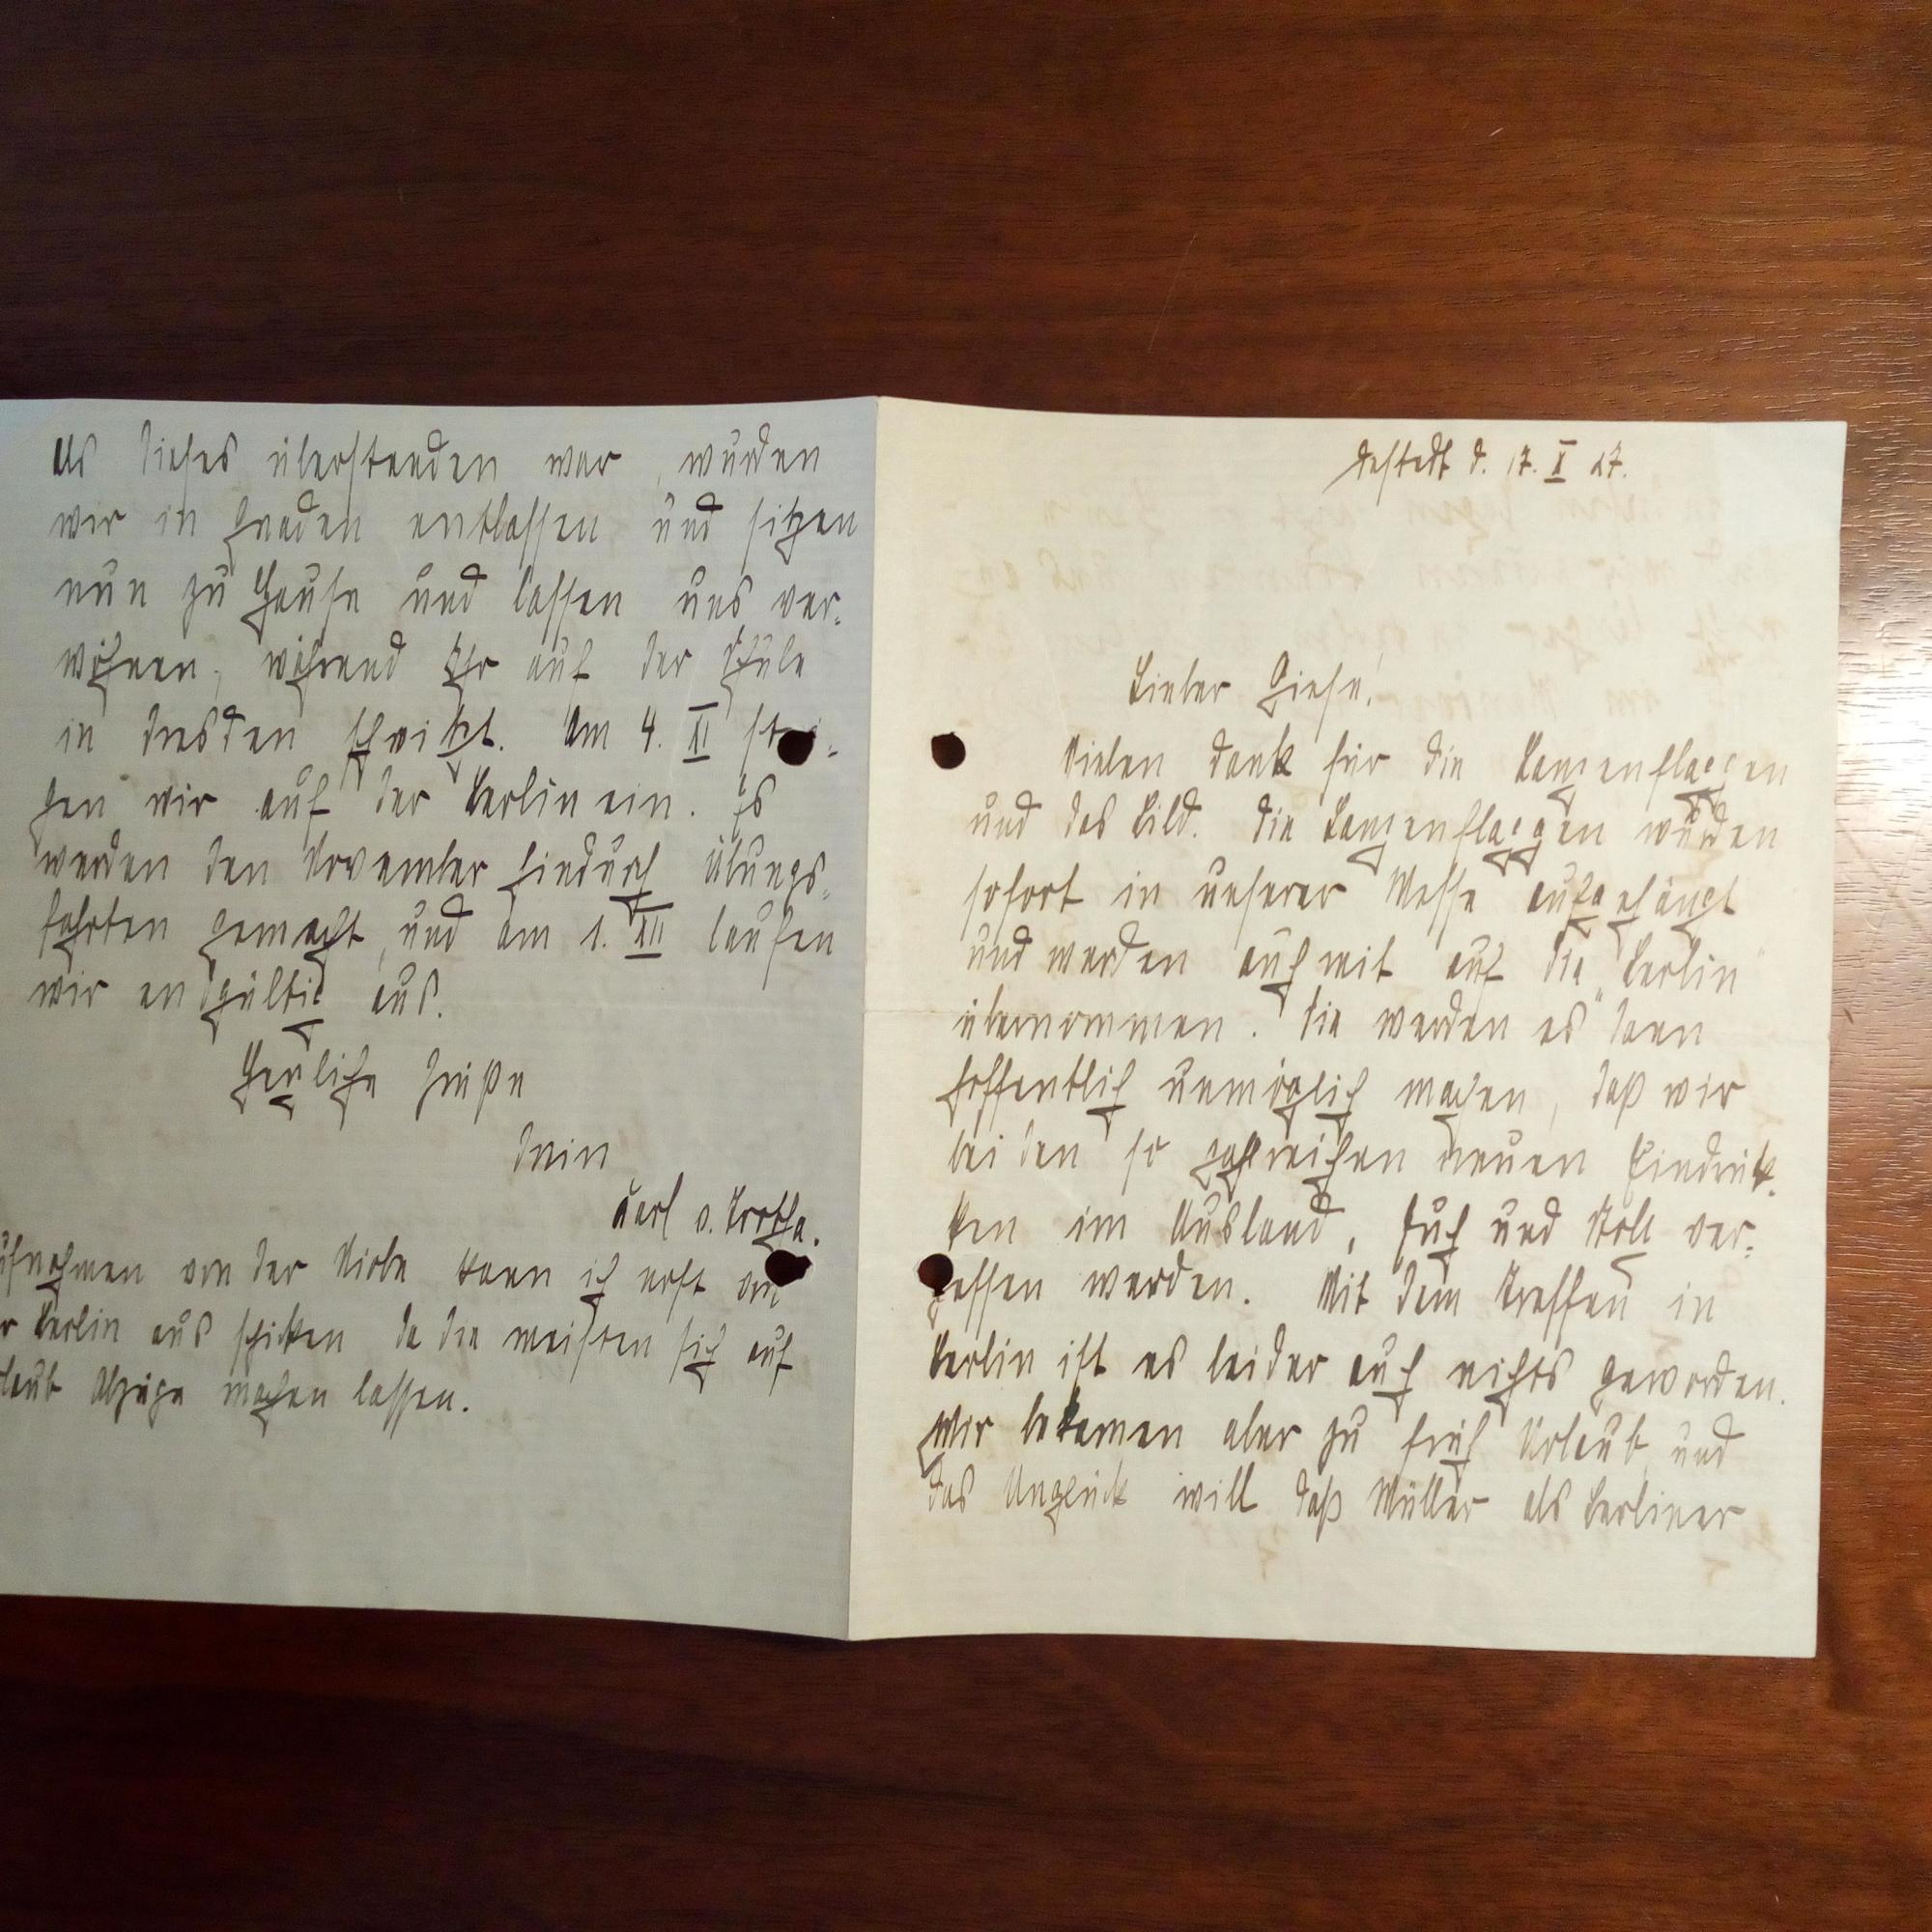 Destedt d. 17. X 27.
Lieber Giese!
Vielen Dank für die Lanzenflaggen
und das Bild. Die Lanzenflaggen wurden
sofort in unserer Messe aufgehängt
und werden auch mit auf die "Berlin"
übernommen. Sie werden es dann
hoffentlich unmöglich machen, daß wir
bei den so zahlreichen neuen Eindrük-
ken im Ausland, Euch und ver-
gessen werden. Mit dem Treffen in
Berlin ist es leider auch nichts geworden.
Wir bekamen aber zu früh Urlaub und
das Unglück will daß Müller als Berliner
Als dieses überstanden war, wurden
wir in Gnaden entlassen und sitzen
nun zu Hause und lassen uns ver-
wöhnen, während Ihr auf der Schule
in Dresden schwitzt. Am 4. XI stei-
gen wir auf der Berlin ein. Es
werden den November hindurch Übungs-
fahrten gemacht, und am 1. XII laufen
wir endgültig aus.
Herzliche Grüße
Dein
Karl v. Trotha.
ufnahmen von der Niobe kann ich erst von
r Berlin aus schicken da die meisten sich auf
laub Abzüge machen lassen.